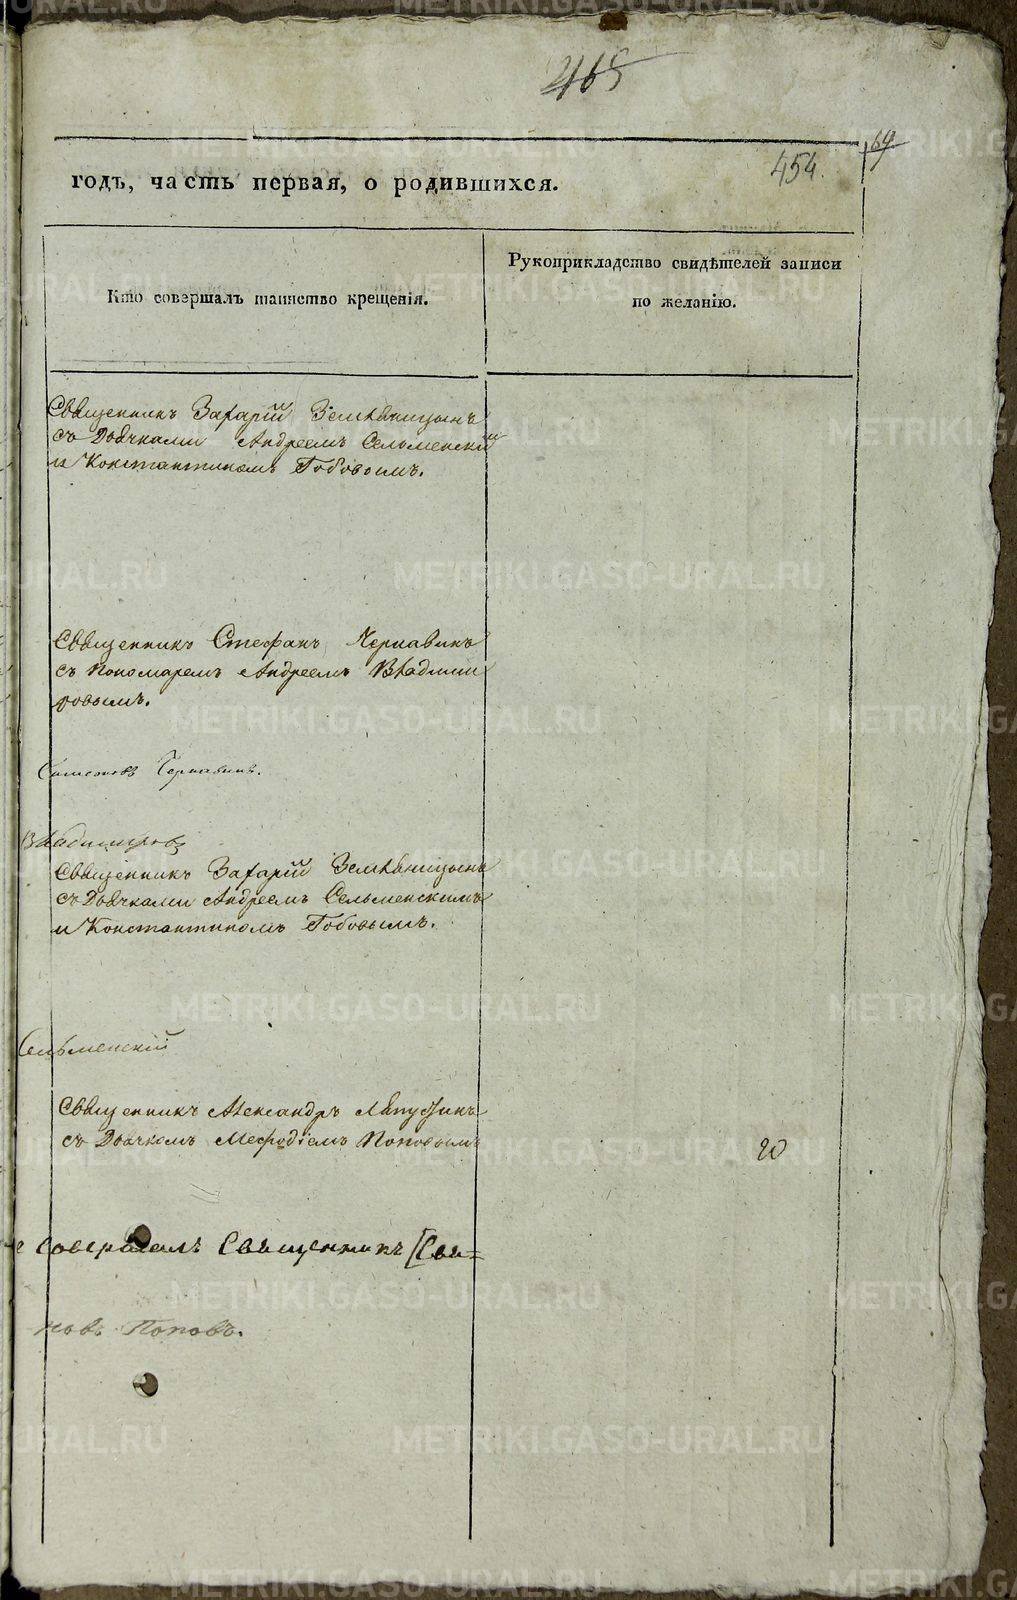 465
64
454.
годъ, часть первая, о родившихся.
Кто совершалъ таинство крещенія.
Рукоприкладство свидѣтелей записи
по желанію.
Священникъ Захарій Земляницынъ
съ Дьячками Андреемъ Сельменскій
и Константиномъ Гобовымъ.
Священникъ Стефанъ Чернавинъ
съ Пономаремъ Андреемъ Владими
ровымъ.
Чернавинъ.
Владимировъ
Священникъ Захарій Земляницынъ
съ Дьячками Андреемъ Сельменскимъ
и Константиномъ Гобовымъ.
Сельменскій
Священникъ Александръ Ляпустинъ
съ Дьячкомъ Мефодіемъ Поповымъ
20
совершалъ Священникъ
новъ Поповъ.
METRIKI.GASO-URAL.RU